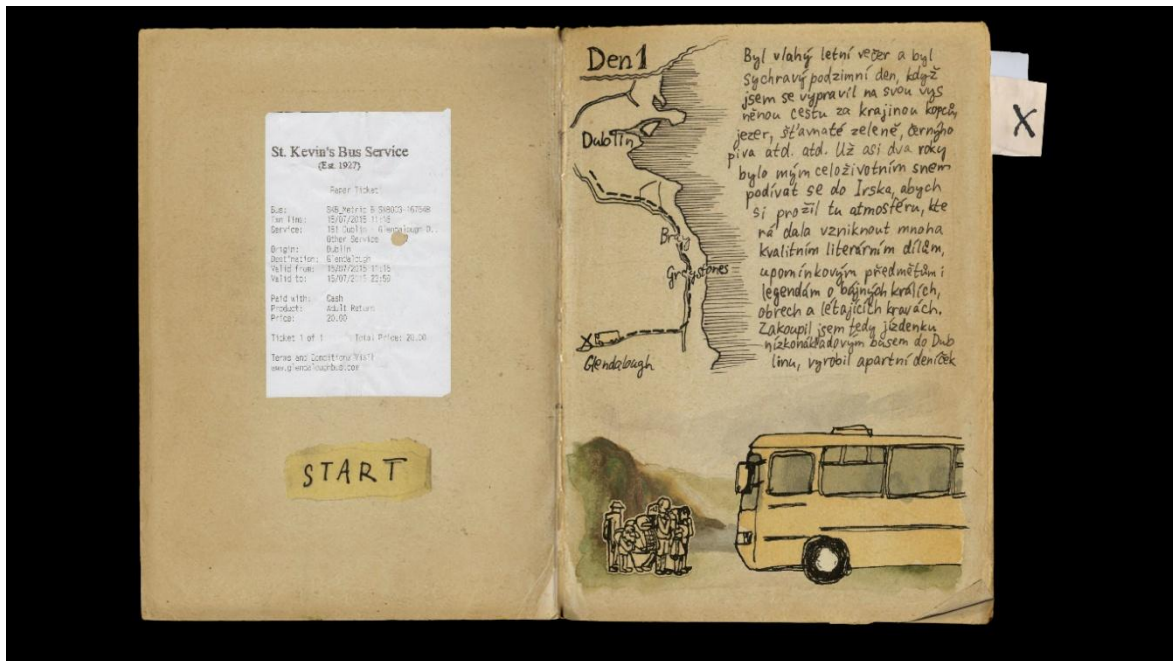 St. Kevin's Bus Service
(Est. 1927)
Paper Ticket
Bus:
Txn Time: 15/07/2015 11:16
Service: 181 Dublin - Glendalough D..
Other Service
Origin: Dublin
Destination: Glendalough
Valid from: 15/07/2015 11:16
Valid to: 15/07/2015 23:59
Paid with: Cash
Product: Adult Return
Price: 20.00
Ticket 1 of 1 Total Price: 20.00
Terms and Conditions
www.glendaloughbus.com
START
Den 1
Dublin
Bray
Greystones
Glendalough
Byl vlahý letní večer a byl
sychravý podzimní den, když
jsem se vypravil na svou vys
něnou cestu za krajinou kopců,
jezer, šťavnaté zeleně, černýho
piva atd. atd. Už asi dva roky
bylo mým celoživotním snem
podívat se do Irska, abych
si prožil tu atmosféru, kte
rá dala vzniknout mnoha
kvalitním literárním dílům,
upomínkovým předmětům i
legendám o bájných králích,
obrech a létajících kravách.
Zakoupil jsem tedy jízdenku
nízkonákladovým busem do Dub
linu, vyrobil apartní deníček
X